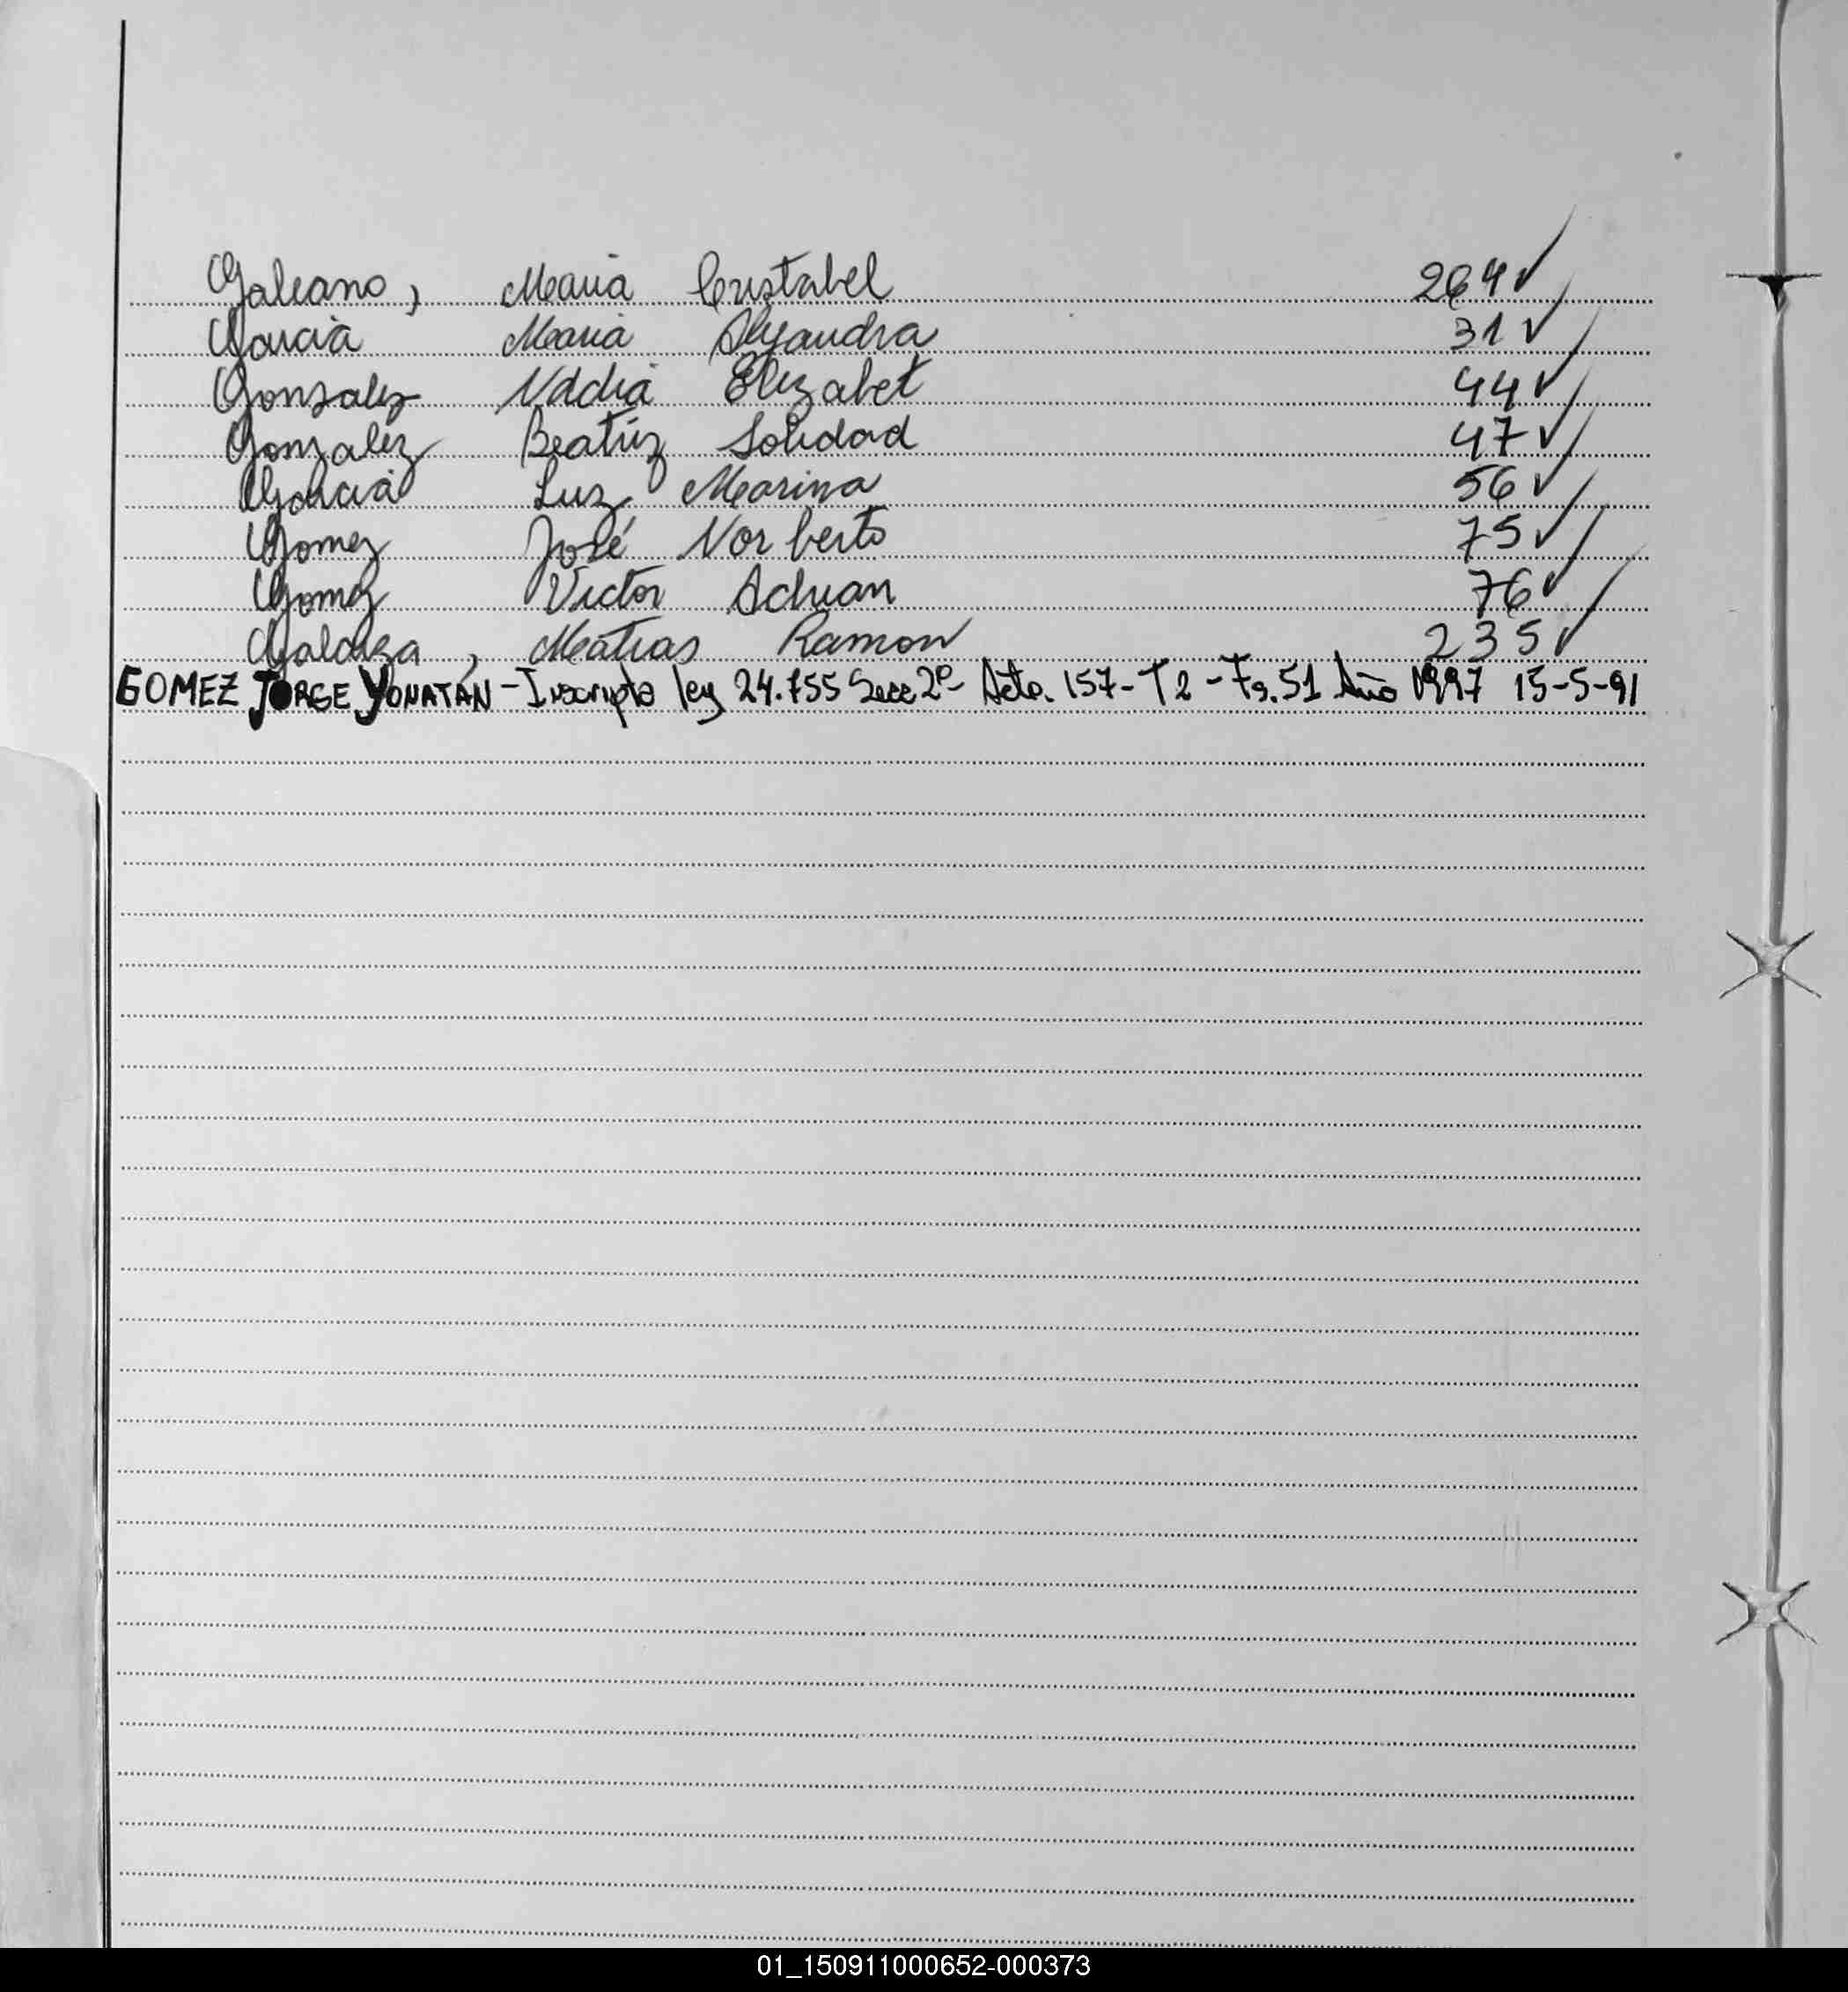 Galeano, Maria Cristabel 264✓
Garcia Maria Alejandra 31✓
Gonzalez Nadia Elizabet 44✓
Gonzalez Beatriz Soledad 47✓
Garcia Luz Marina 56✓
Gomez José Norberto 75✓
Gomez Victor Adrian 76✓
Galarza, Matias Ramon 235✓
GOMEZ JORGE YONATAN - Inscripto ley 24.755 Secc 2º- Acta. 157-T2-Fs.51 Año 1997 15-5-91
01_150911000652-000373